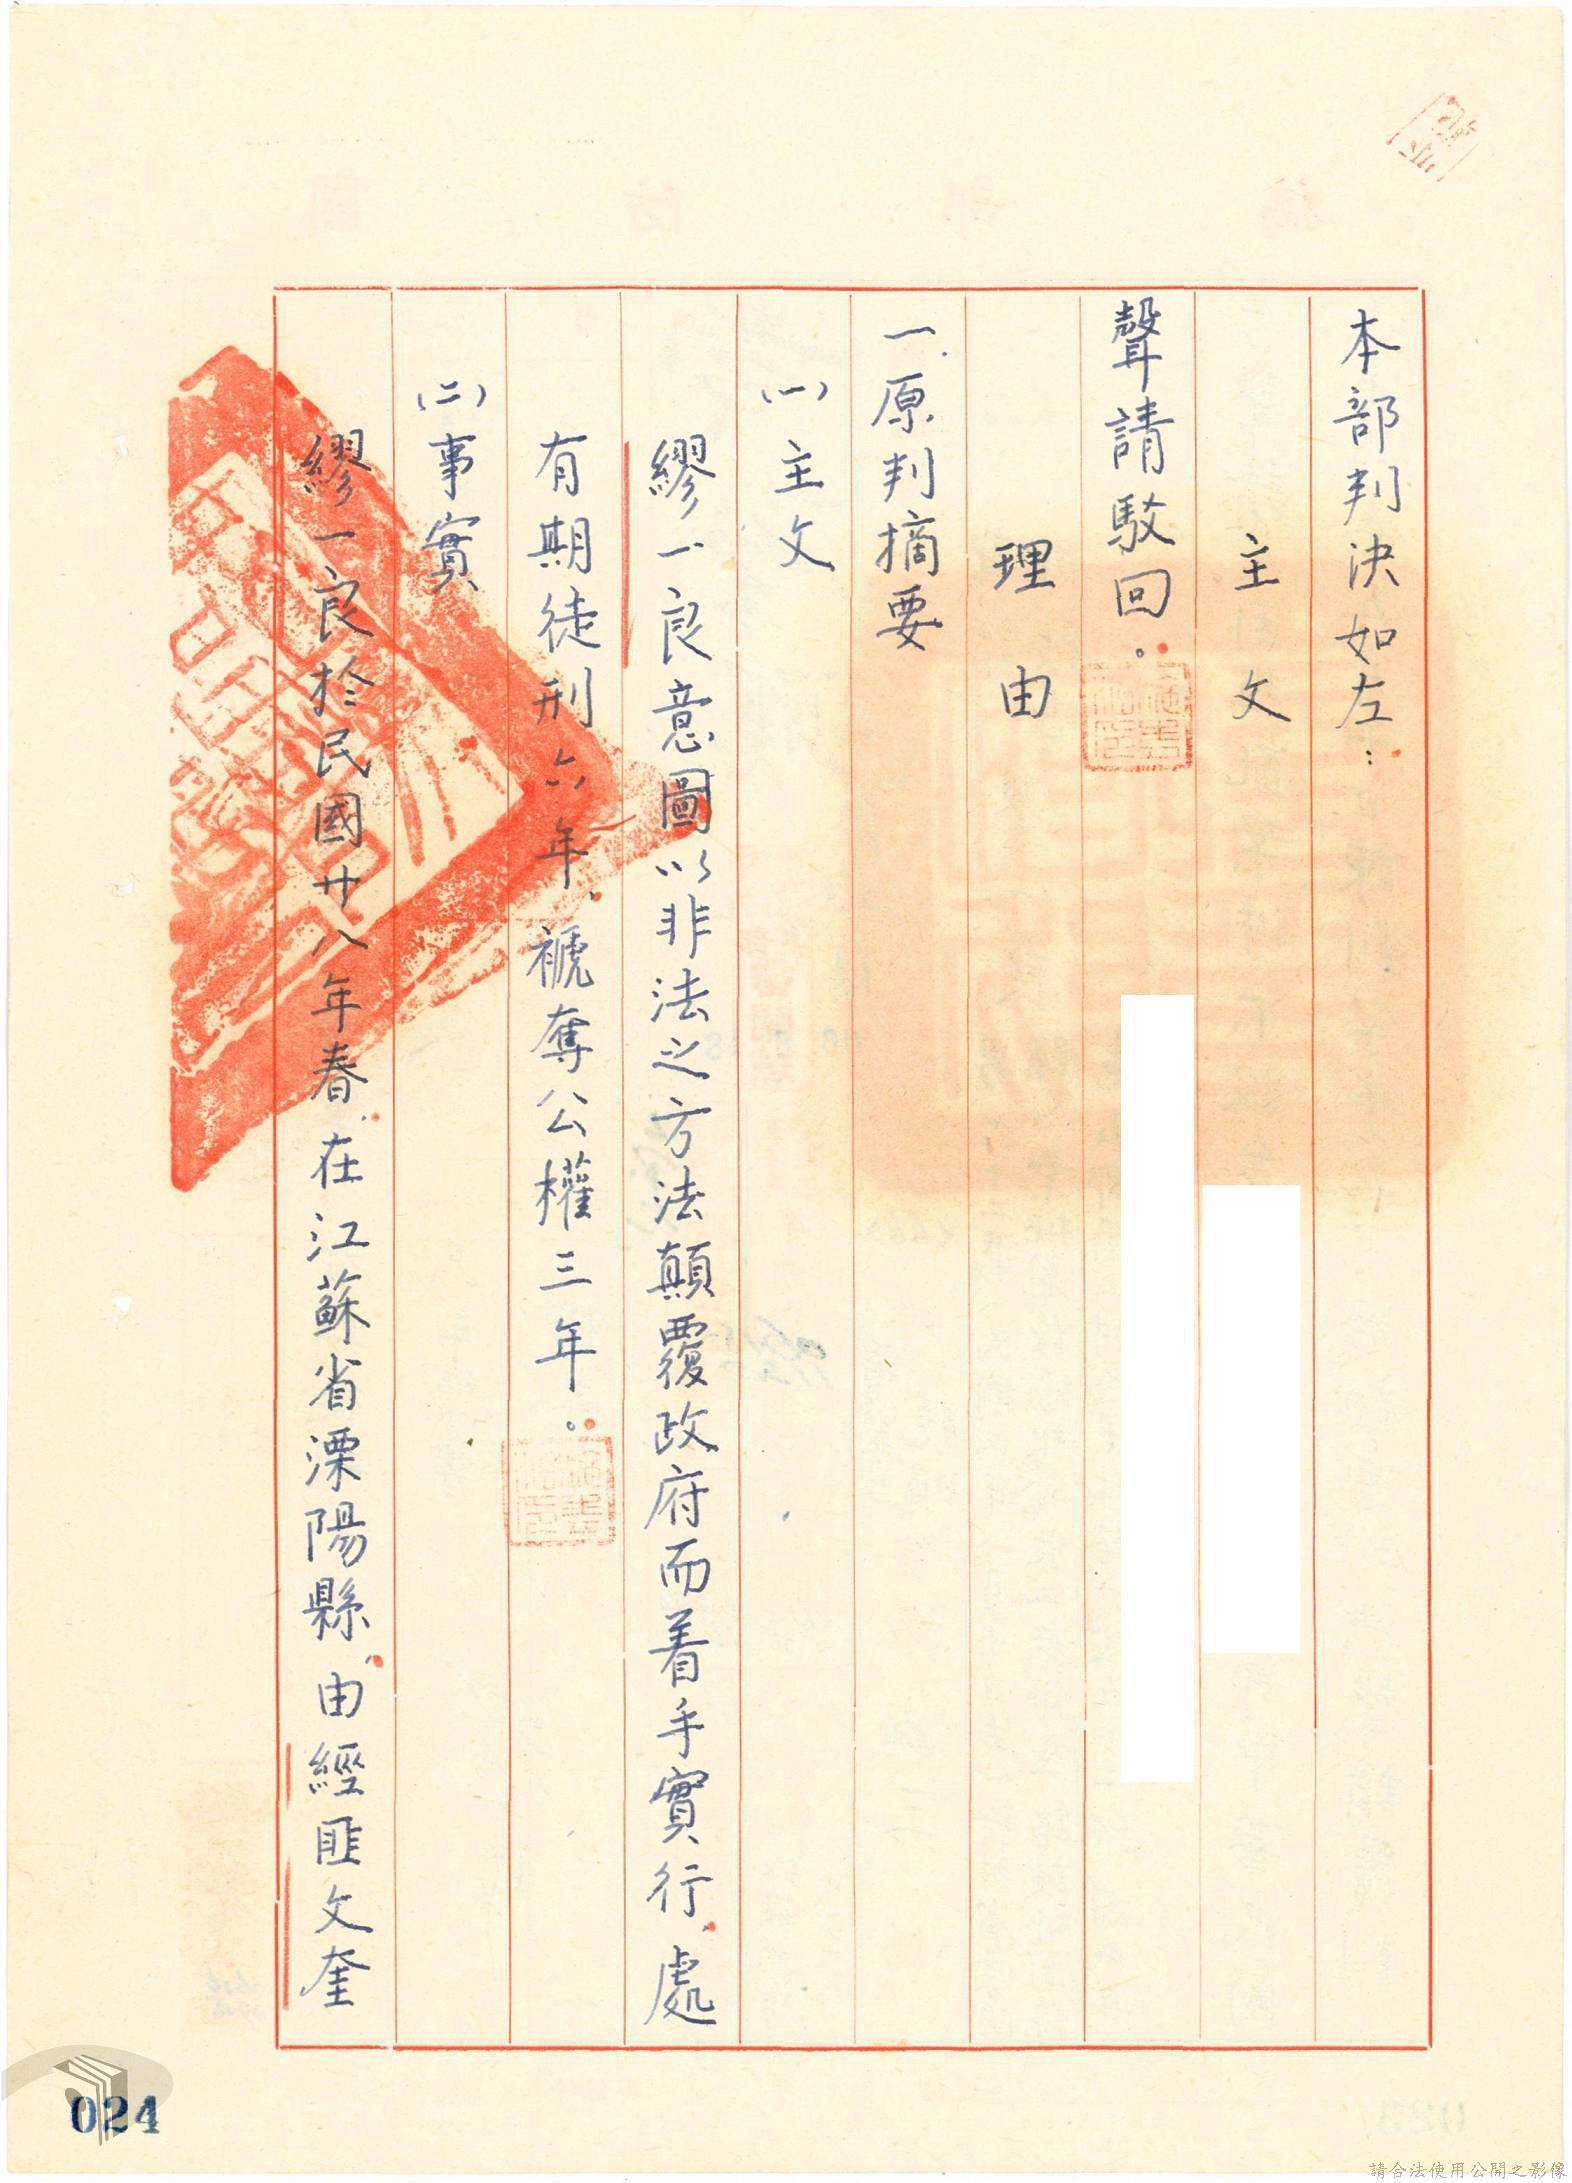 本部判決如左：
主文
聲請駁回。
理由
一、原判摘要
(一)主文
繆一良意圖以非法之方法顛覆政府而着手實行、處
有期徒刑六年、褫奪公權三年。
(二)事實
繆一良於民國廿八年春、在江蘇省溧陽縣、由經匪文奎
024
請合法使用公開之影像